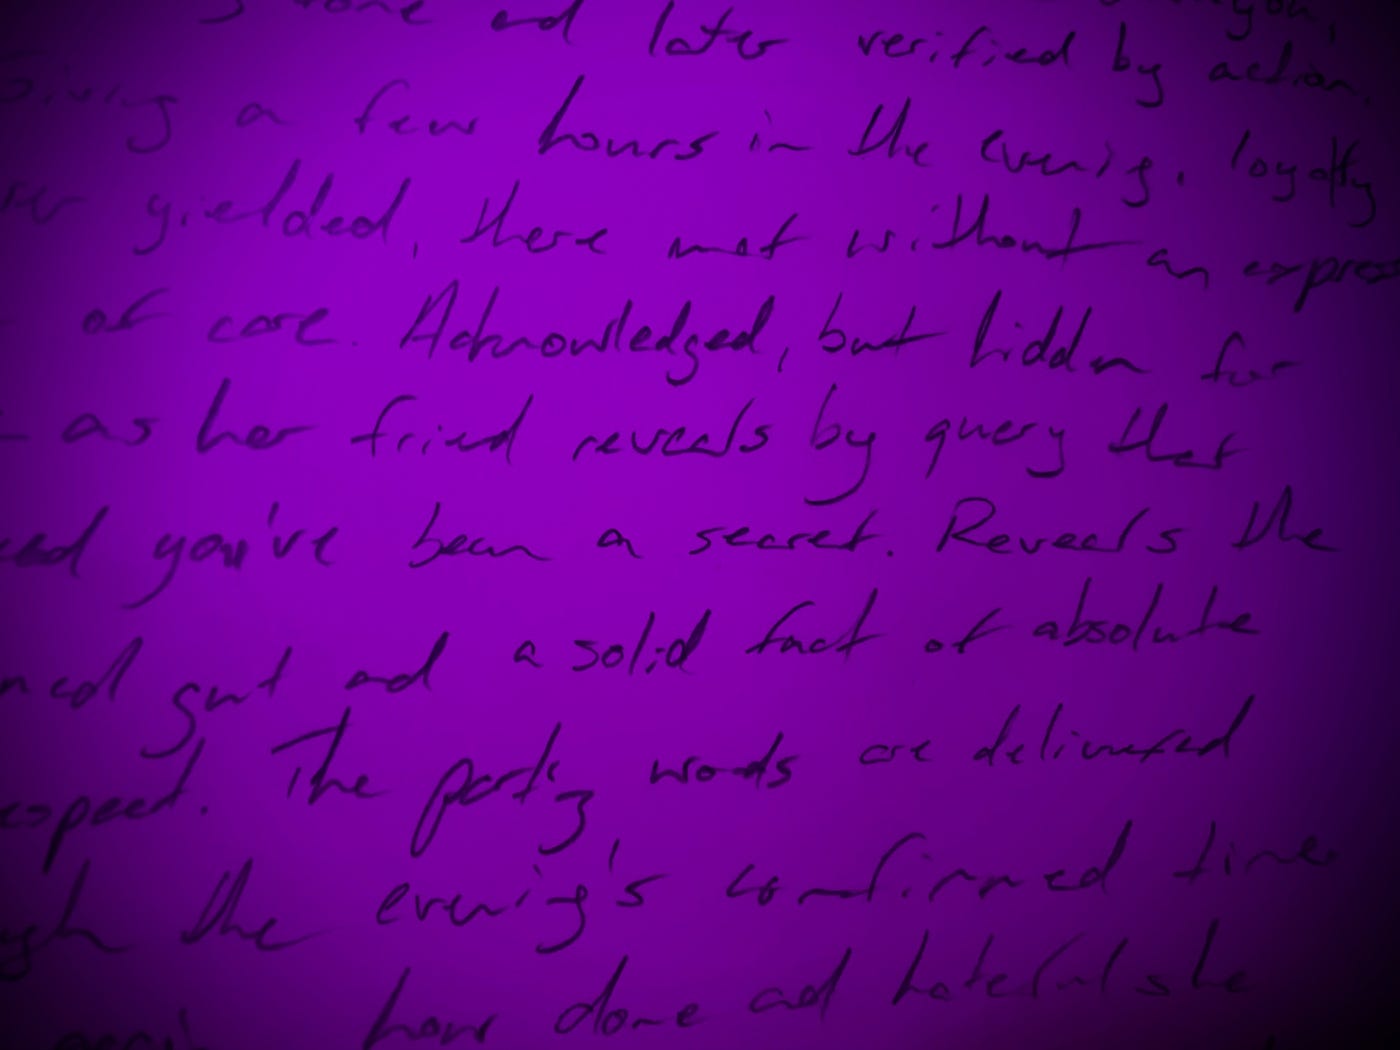 and later verified by action.
Giving a few hours in the evening. loyalty
yielded, there not without an express
of care. Acknowledged, but hidden for
as her friend reveals by query that
you've been a secret. Reveals the
gut and a solid fact of absolute
The party words are delivered
the evening's confirmed time
how done and hateful she